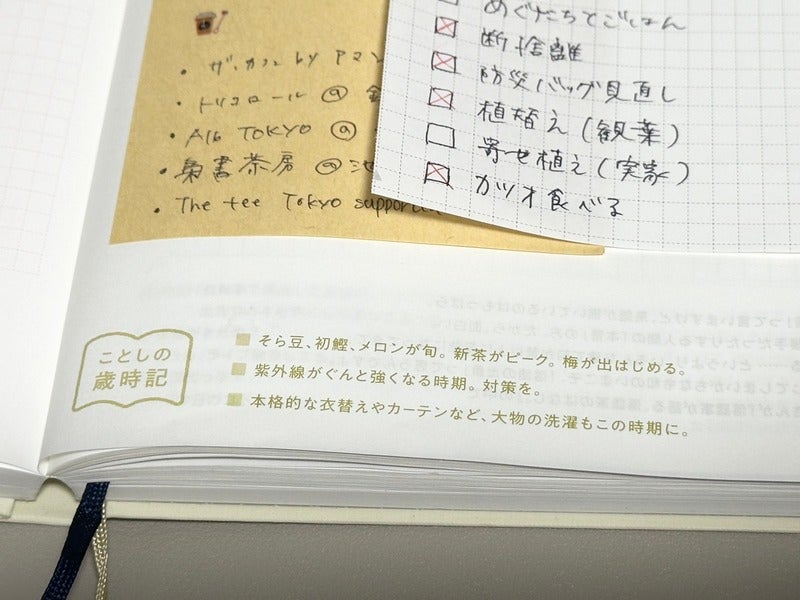 ザ・カフェ by アマン
トリコロール @
A16 TOKYO @
梟書茶房 @ 池
The tee Tokyo supported
めぐたちてごはん
断捨離
防災バッグ見直し
植替え(観葉)
寄せ植え(実家)
カツオ食べる
ことしの
歳時記
そら豆、初鰹、メロンが旬。新茶がピーク。梅が出はじめる。
紫外線がぐんと強くなる時期。対策を。
本格的な衣替えやカーテンなど、大物の洗濯もこの時期に。